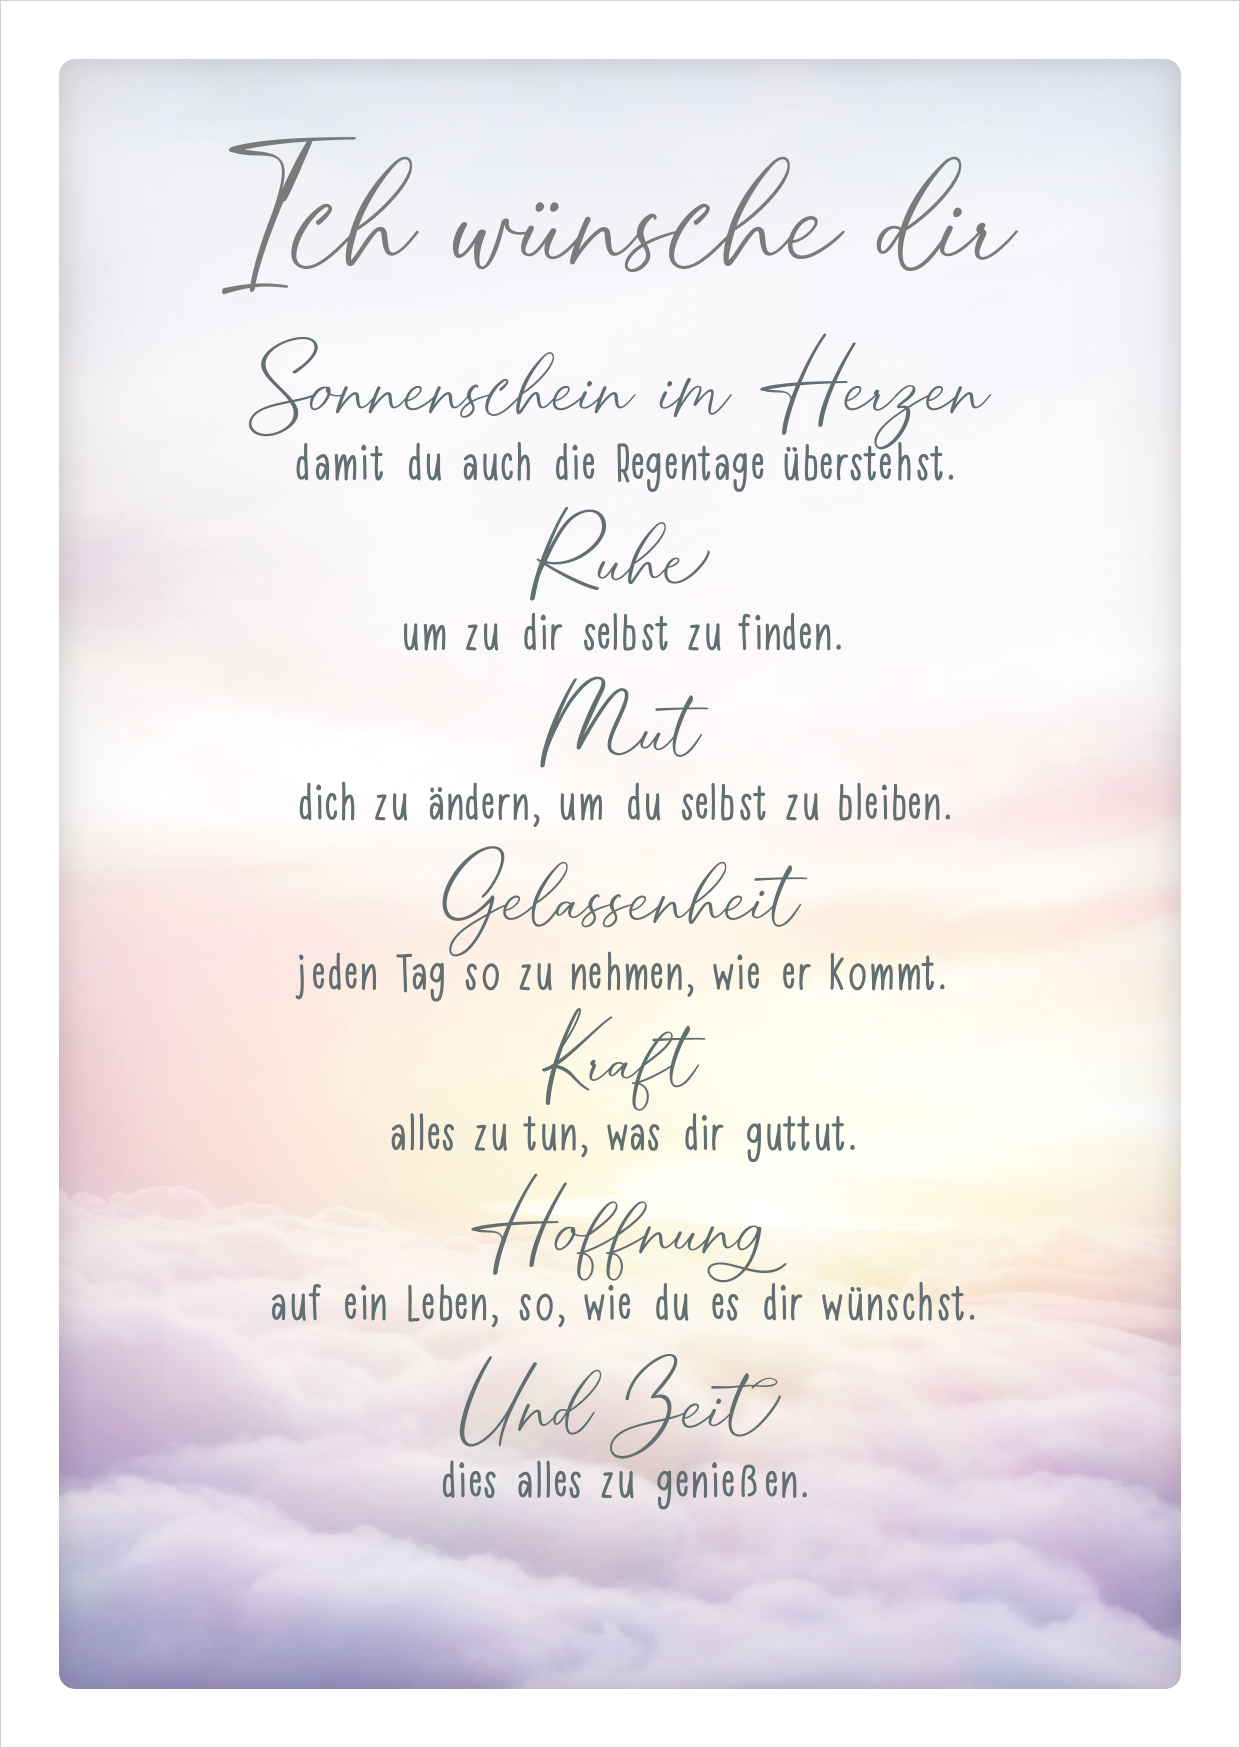 Ich wünsche dir
Sonnenschein im Herzen
damit du auch die Regentage überstehst.
Ruhe
um zu dir selbst zu finden.
Mut
dich zu ändern, um du selbst zu bleiben.
Gelassenheit
jeden Tag so zu nehmen, wie er kommt.
Kraft
alles zu tun, was dir guttut.
Hoffnung
auf ein Leben, so, wie du es dir wünschst.
Und Zeit
dies alles zu genießen.